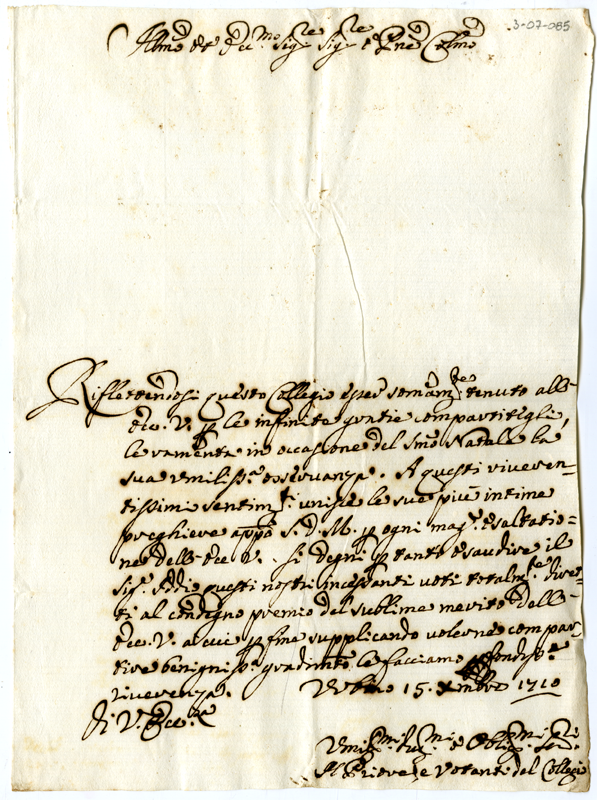 3-07-085
Illmo et Ecc.mo Sig.re Sig.re e Prone Colmo
Riflettendosi questo Collegio esser somam.te tenuto all'
Ecc. V. p le infinite gratie compartitegli,
le ramenta in occasione del Smo Natale la
sua umiliss.a osservanza. A questi riveren=
tissimi sentim.ti unisce le sue più intime
preghiere appo S. D. M. p ogni mag.r esaltatio=
ne dell'Ecc V. Si degni p tanto esaudire il
Sig.r Iddio questi nostri incessanti voti totalm.te diret=
ti al condigno premio del sublime merito dell'
Ecc. V. a cui p fine supplicando volerne compar=
tire benigniss.o gradimto le facciamo profondiss.a
riverenza. Urbino 15. Xmbre 1710
Di V. Ecc.za
Umil.mi e Oblig.mi Ser.ri
Il Priore, e Votanti del Collegio